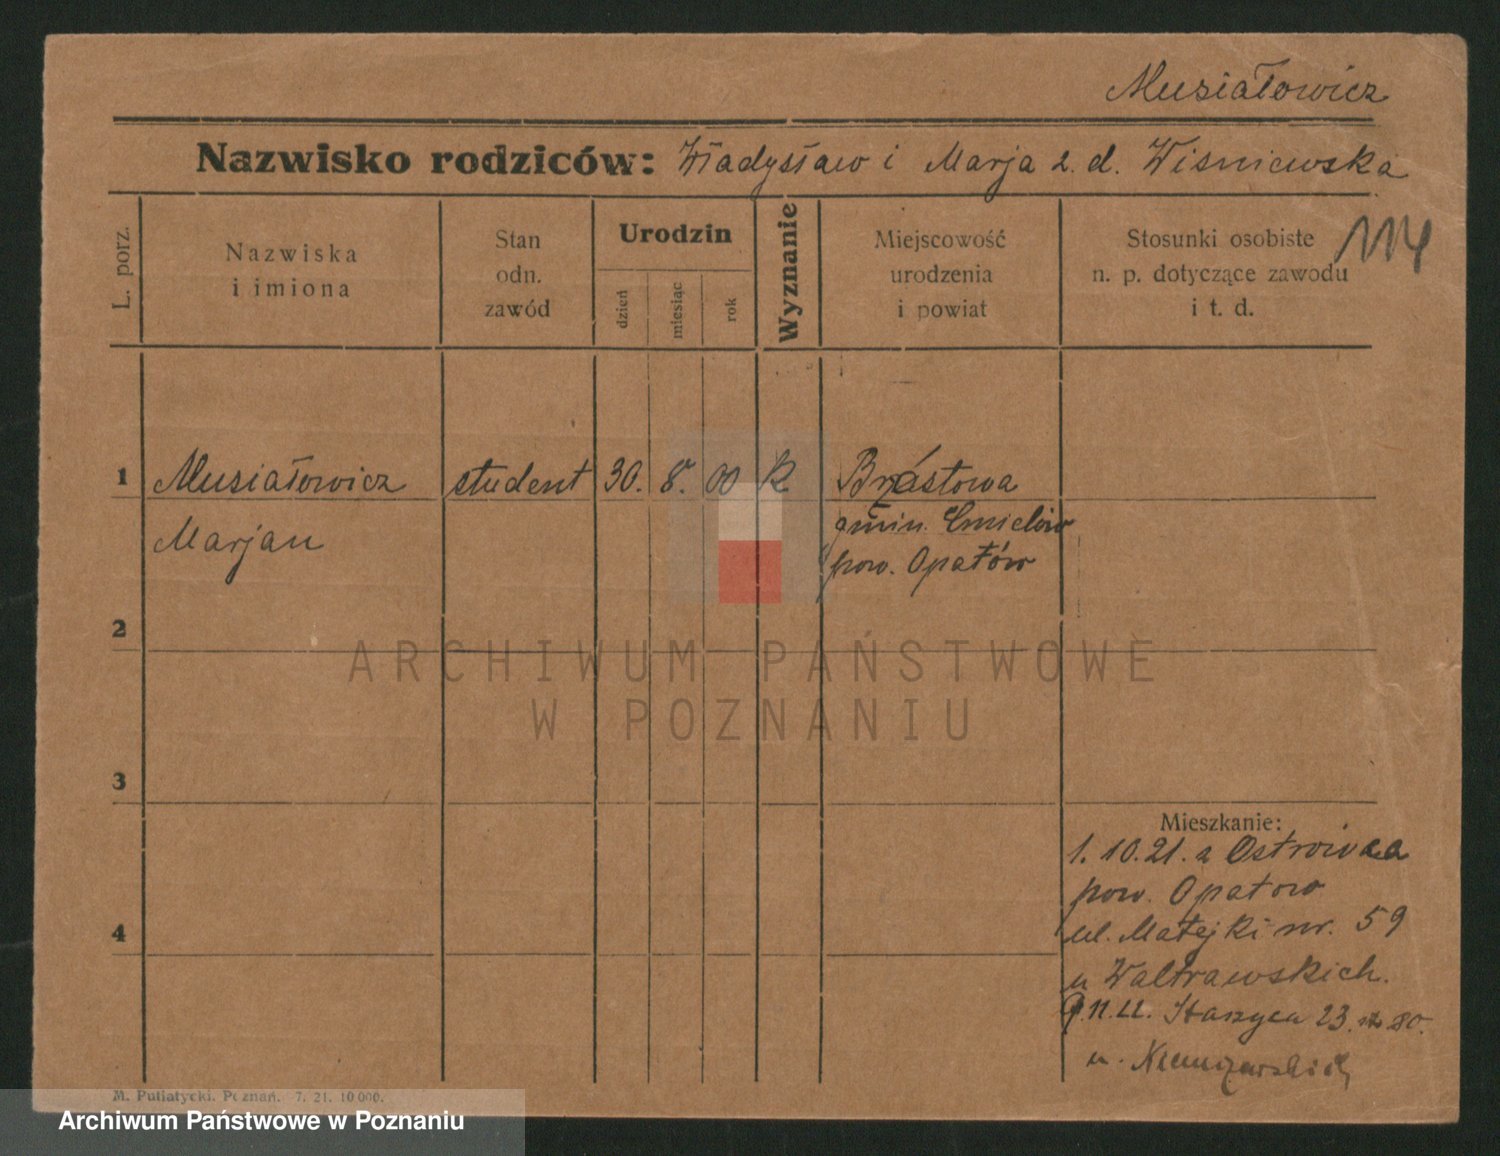 Musiałowicz
Nazwisko rodziców: Władysław i Marja z. d. Wiśniewska
L. porz.
Nazwiska
i imiona
Stan
odn.
zawód
Urodzin
dzień
miesiąc
rok
Wyznanie
Miejscowość
urodzenia
i powiat
Stosunki osobiste
n. p. dotyczące zawodu
i t. d.
114
1 Musiałowicz student 30. 8. 00 k.
Marjan
gmin. Ćmielów
pow. Opatów
2
3
4
Mieszkanie:
1. 10. 21. z Ostrowca
pow. Opatow
ul. Matejki nr. 59
u
11. 22. Staszyca 23.
u.
ARCHIWUM PAŃSTWOWE
W POZNANIU
M. Putiatycki. Poznań. 7. 21. 10 000.
Archiwum Państwowe w Poznaniu